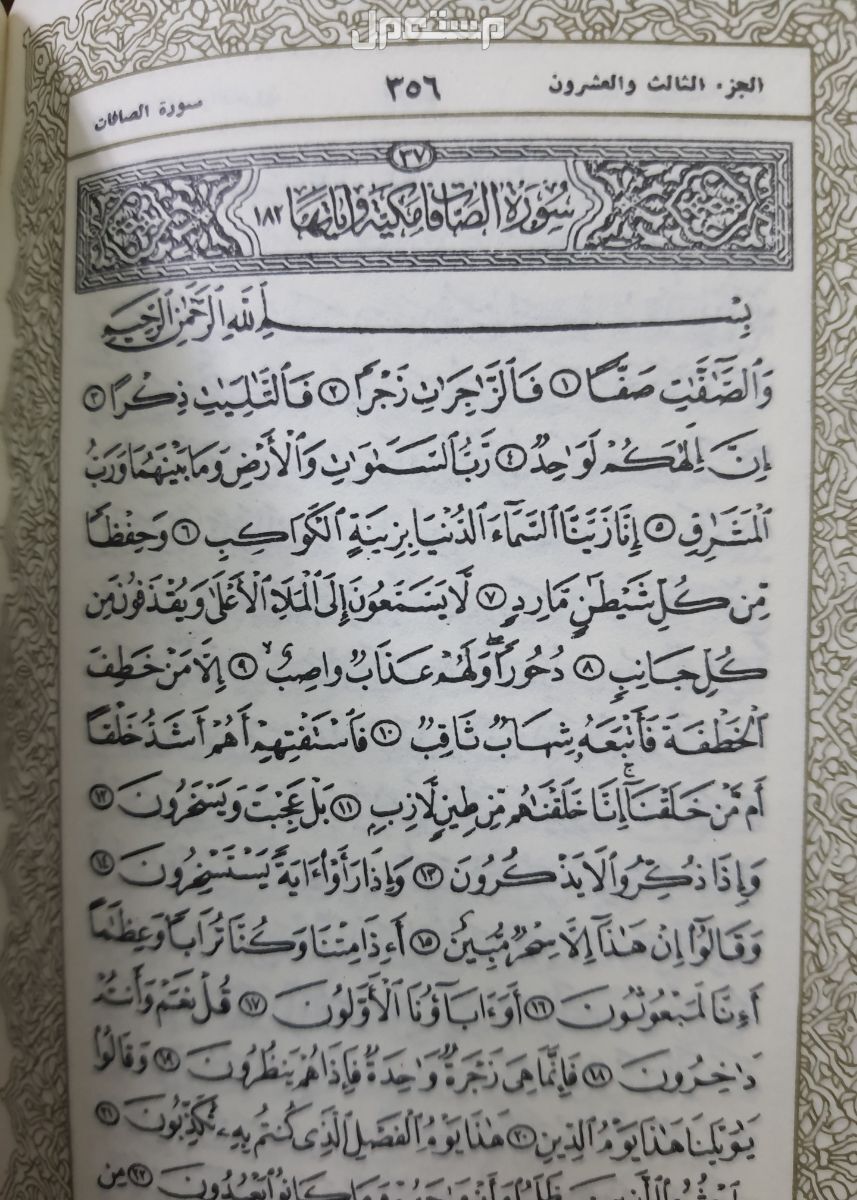 مستعمل
الجزء الثالث والعشرون ٣٥٦ سورة الصافات
٣٧
سورة الصافات مكية وآياتها ١٨٢
بِسْمِ اللَّهِ الرَّحْمَٰنِ الرَّحِيمِ
وَٱلصَّٰٓفَّٰتِ صَفًّا ١ فَٱلزَّٰجِرَٰتِ زَجْرًا ٢ فَٱلتَّٰلِيَٰتِ ذِكْرًا ٣
إِنَّ إِلَٰهَكُمْ لَوَٰحِدٌ ٤ رَّبُّ ٱلسَّمَٰوَٰتِ وَٱلْأَرْضِ وَمَا بَيْنَهُمَا وَرَبُّ
ٱلْمَشَٰرِقِ ٥ إِنَّا زَيَّنَّا ٱلسَّمَآءَ ٱلدُّنْيَا بِزِينَةٍ ٱلْكَوَاكِبِ ٦ وَحِفْظًا
مِّن كُلِّ شَيْطَٰنٍ مَّارِدٍ ٧ لَّا يَسَّمَّعُونَ إِلَى ٱلْمَلَإِ ٱلْأَعْلَىٰ وَيُقْذَفُونَ مِن
كُلِّ جَانِبٍ ٨ دُحُورًا وَلَهُمْ عَذَابٌ وَاصِبٌ ٩ إِلَّا مَنْ خَطِفَ
ٱلْخَطْفَةَ فَأَتْبَعَهُۥ شِهَابٌ ثَاقِبٌ ١٠ فَٱسْتَفْتِهِمْ أَهُمْ أَشَدُّ خَلْقًا
أَم مَّنْ خَلَقْنَآ إِنَّا خَلَقْنَٰهُم مِّن طِينٍ لَّازِبٍ ١١ بَلْ عَجِبْتَ وَيَسْخَرُونَ ١٢
وَإِذَا ذُكِّرُوا۟ لَا يَذْكُرُونَ ١٣ وَإِذَا رَأَوْا۟ ءَايَةً يَسْتَسْخِرُونَ ١٤
وَقَالُوٓا۟ إِنْ هَٰذَآ إِلَّا سِحْرٌ مُّبِينٌ ١٥ أَءِذَا مِتْنَا وَكُنَّا تُرَابًا وَعِظَٰمًا
أَءِنَّا لَمَبْعُوثُونَ ١٦ أَوَءَابَآؤُنَا ٱلْأَوَّلُونَ ١٧ قُلْ نَعَمْ وَأَنتُمْ
دَٰخِرُونَ ١٨ فَإِنَّمَا هِىَ زَجْرَةٌ وَٰحِدَةٌ فَإِذَا هُمْ يَنظُرُونَ ١٩ وَقَالُوا۟
يَٰوَيْلَنَا هَٰذَا يَوْمُ ٱلدِّينِ ٢٠ هَٰذَا يَوْمُ ٱلْفَصْلِ ٱلَّذِى كُنتُم بِهِۦ تُكَذِّبُونَ ٢١
ظَلَمُوا۟ وَأَزْوَٰجَهُمْ وَمَا كَانُوا۟ يَعْبُدُونَ ٢٢ مِن